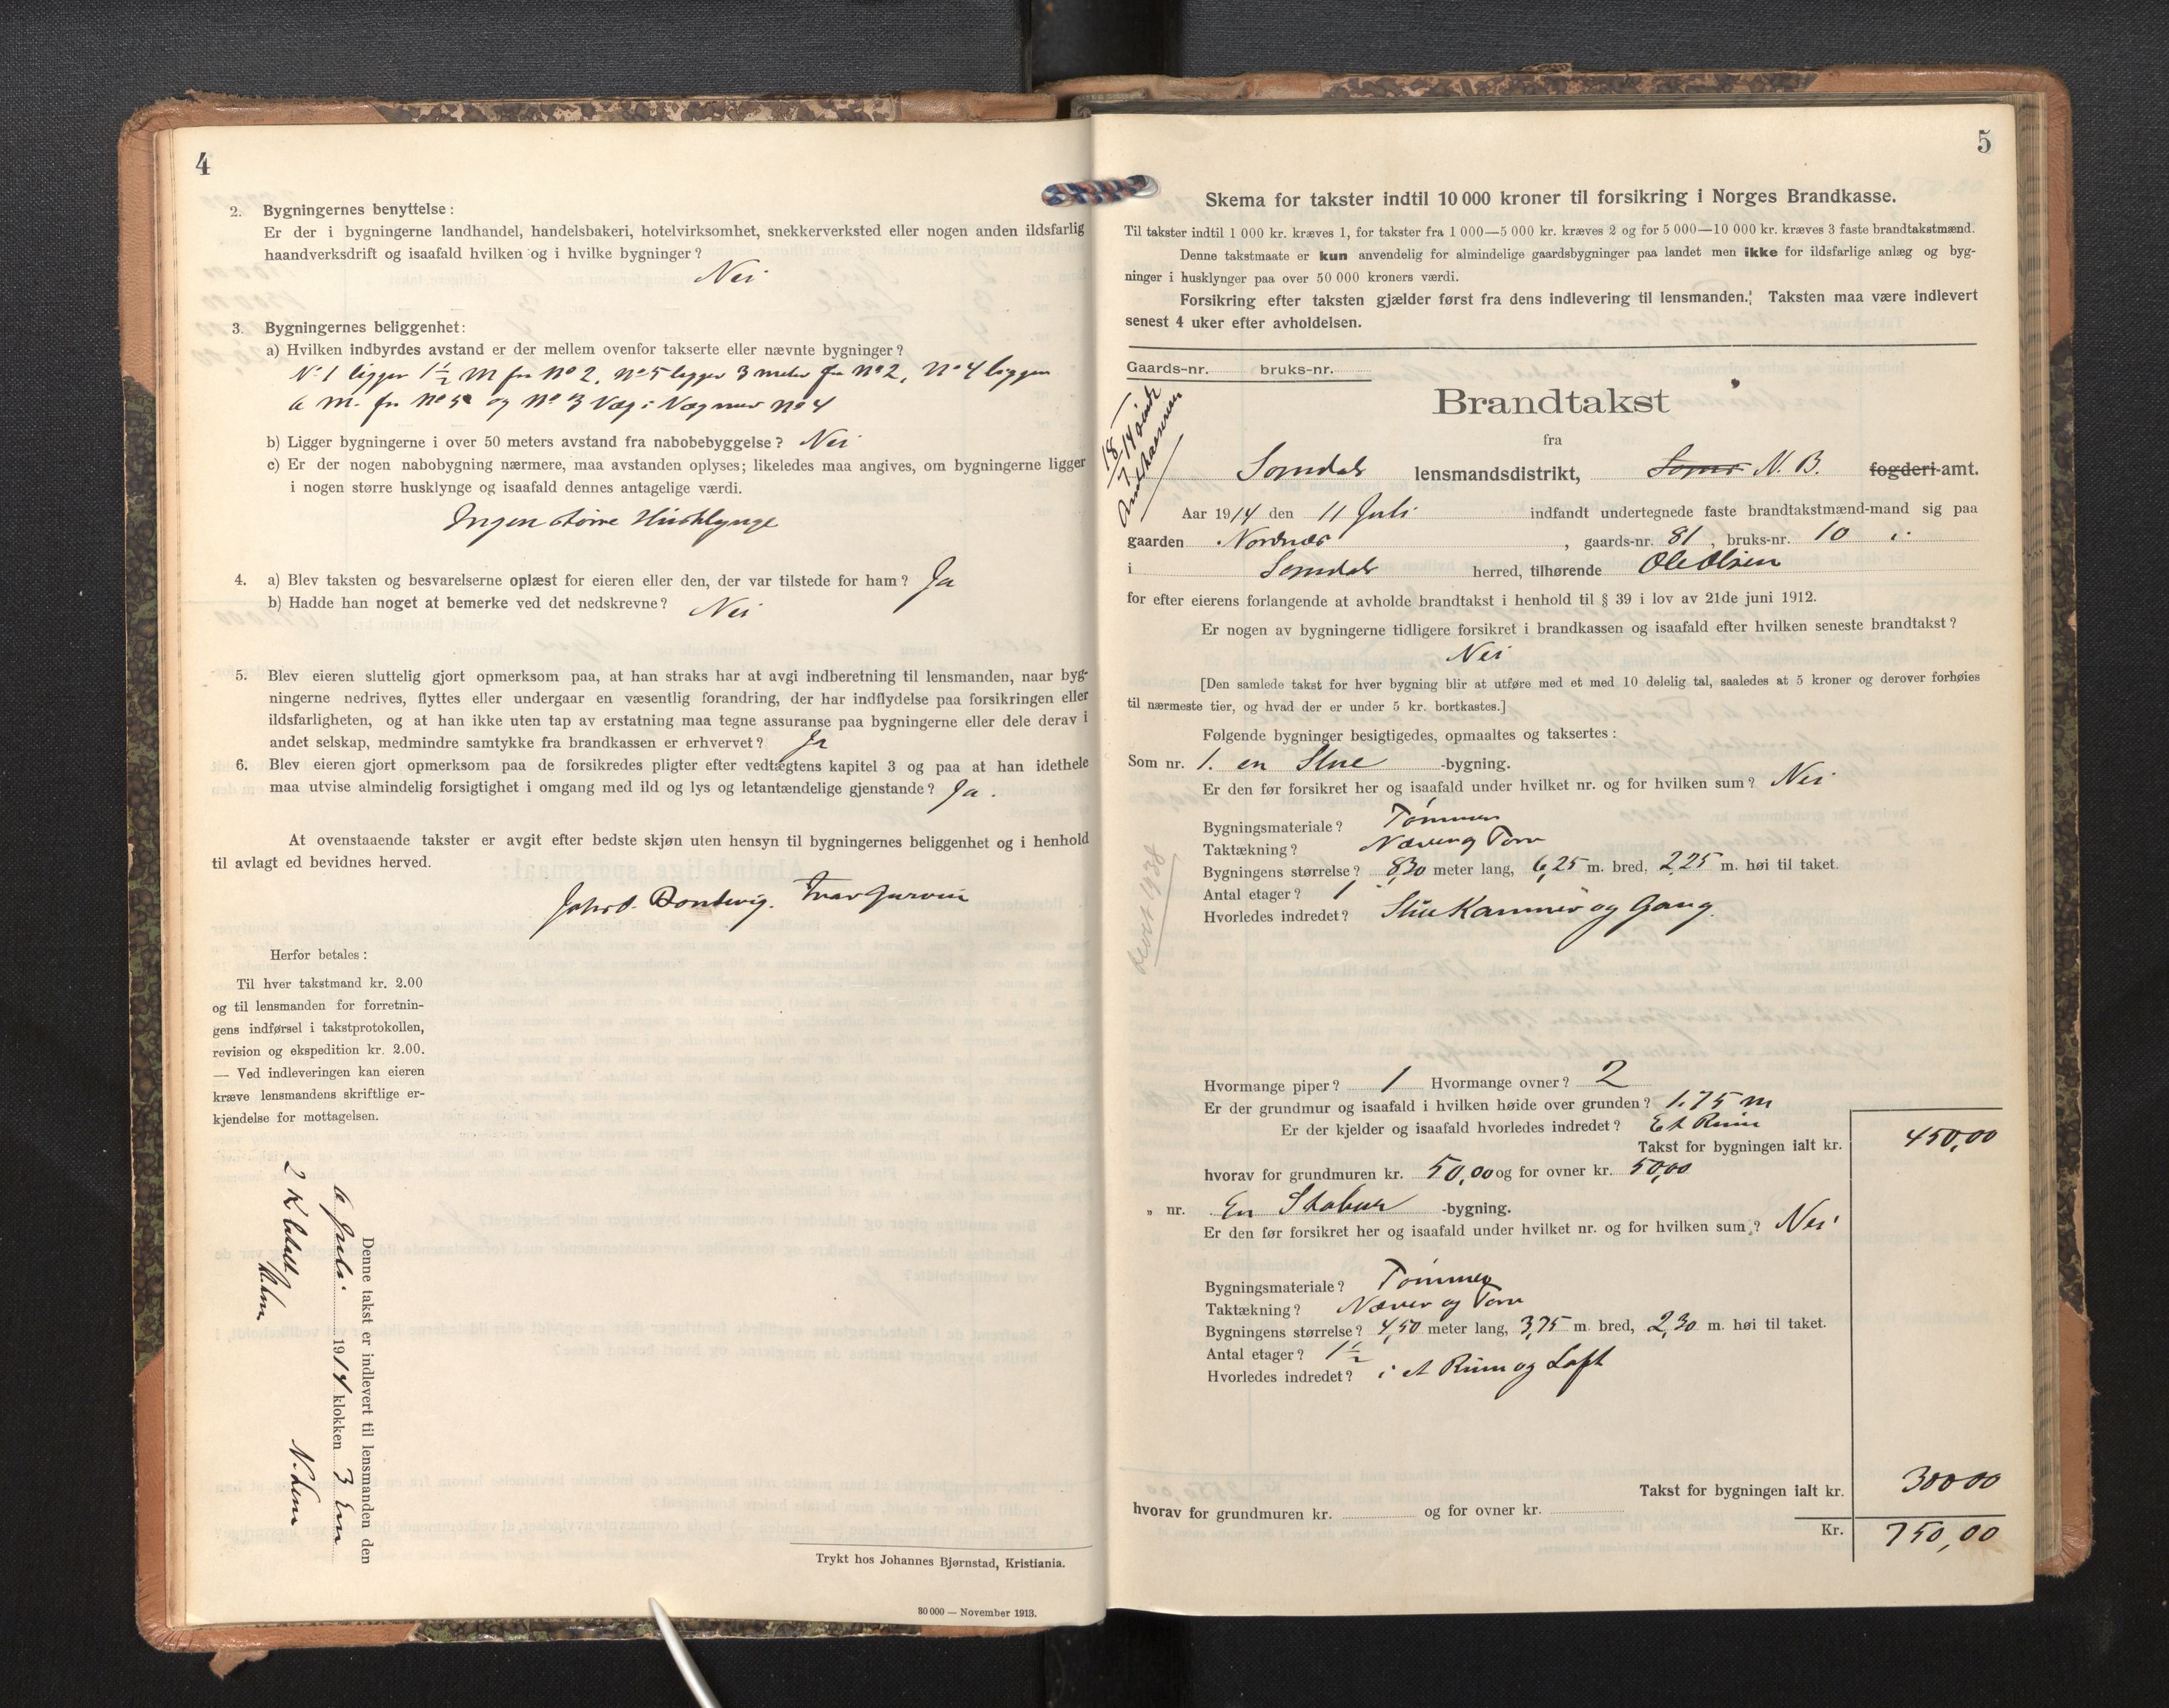 4
2. Bygningernes benyttelse:
Er der i bygningerne landhandel, handelsbakeri, hotelvirksomhet, snekkerverksted eller nogen anden ildsfarlig
haandverksdrift og isaafald hvilken og i hvilke bygninger?
Nei
3. Bygningernes beliggenhet:
a) Hvilken indbyrdes avstand er der mellem ovenfor takserte eller nævnte bygninger?
No 1 ligger 1½ m fra no 2, no 5 ligger 3 meter fra no 2, no 4 ligger
6 m. fra no 5 og no 3 Væg i Væg med no 4
b) Ligger bygningerne i over 50 meters avstand fra nabobebyggelse? Nei
c) Er der nogen nabobygning nærmere, maa avstanden oplyses; likeledes maa angives, om bygningerne ligger
i nogen større husklynge og isaafald dennes antagelige værdi.
Ingen større Husklynge
4. a) Blev taksten og besvarelserne oplæst for eieren eller den, der var tilstede for ham? Ja
b) Hadde han noget at bemerke ved det nedskrevne? Nei
5. Blev eieren sluttelig gjort opmerksom paa, at han straks har at avgi indberetning til lensmanden, naar byg-
ningerne nedrives, flyttes eller undergaar en væsentlig forandring, der har indflydelse paa forsikringen eller
ildsfarligheten, og at han ikke uten tap av erstatning maa tegne assuranse paa bygningerne eller dele derav i
andet selskap, medmindre samtykke fra brandkassen er erhvervet? Ja
6. Blev eieren gjort opmerksom paa de forsikredes pligter efter vedtægtens kapitel 3 og paa at han idethele
maa utvise almindelig forsigtighet i omgang med ild og lys og letantændelige gjenstande? Ja.
At ovenstaaende takster er avgit efter bedste skjøn uten hensyn til bygningernes beliggenhet og i henhold
til avlagt ed bevidnes herved.
Herfor betales:
Til hver takstmand kr. 2.00
og til lensmanden for forretnin-
gens indførsel i takstprotokollen,
revision og ekspedition kr. 2.00.
— Ved indleveringen kan eieren
kræve lensmandens skriftlige er-
kjendelse for mottagelsen.
Denne takst er indlevert til lensmanden den
6 Juli 1914 klokken 3 Em
Trykt hos Johannes Bjørnstad, Kristiania.
30 000 — November 1913.
5
Skema for takster indtil 10 000 kroner til forsikring i Norges Brandkasse.
Til takster indtil 1 000 kr. kræves 1, for takster fra 1 000—5 000 kr. kræves 2 og for 5 000—10 000 kr. kræves 3 faste brandtakstmænd.
Denne takstmaate er kun anvendelig for almindelige gaardsbygninger paa landet men ikke for ildsfarlige anlæg og byg-
ninger i husklynger paa over 50 000 kroners værdi.
Forsikring efter taksten gjælder først fra dens indlevering til lensmanden. Taksten maa være indlevert
senest 4 uker efter avholdelsen.
Gaards-nr. bruks-nr.
Brandtakst
fra
lensmandsdistrikt, N. B. fogderi-amt.
Aar 1914 den 11 Juli indfandt undertegnede faste brandtakstmænd-mand sig paa
gaarden Nordnæs, gaards-nr. 81, bruks-nr. 10 i
i herred, tilhørende Ole Olsen
for efter eierens forlangende at avholde brandtakst i henhold til § 39 i lov av 21de juni 1912.
Er nogen av bygningerne tidligere forsikret i brandkassen og isaafald efter hvilken seneste brandtakst?
Nei
[Den samlede takst for hver bygning blir at utføre med et med 10 delelig tal, saaledes at 5 kroner og derover forhøies
til nærmeste tier, og hvad der er under 5 kr. bortkastes.]
Følgende bygninger besigtigedes, opmaaltes og taksertes:
Som nr. 1. en Stue -bygning.
Er den før forsikret her og isaafald under hvilket nr. og for hvilken sum? Nei
Bygningsmateriale? Tømmer
Taktækning? Næver og Torv
Bygningens størrelse? 8,30 meter lang, 6,25 m. bred, 2,25 m. høi til taket.
Antal etager? 1
Hvorledes indredet? Stue Kammer og Gang.
Hvormange piper? 1 Hvormange ovner? 2
Er der grundmur og isaafald i hvilken høide over grunden? 1.75 m
Er der kjelder og isaafald hvorledes indredet? Et Rum
Takst for bygningen ialt kr. 450,00
hvorav for grundmuren kr. 50,00 og for ovner kr. 50,00
„ nr. En Stabur -bygning.
Er den før forsikret her og isaafald under hvilket nr. og for hvilken sum? Nei
Bygningsmateriale? Tømmer
Taktækning? Næver og Torv
Bygningens størrelse? 4,50 meter lang, 3,75 m. bred, 2,30 m. høi til taket.
Antal etager? 1½
Hvorledes indredet? i et Rum og Loft
Takst for bygningen ialt kr. 300 00
hvorav for grundmuren kr. og for ovner kr.
Kr. 750,00